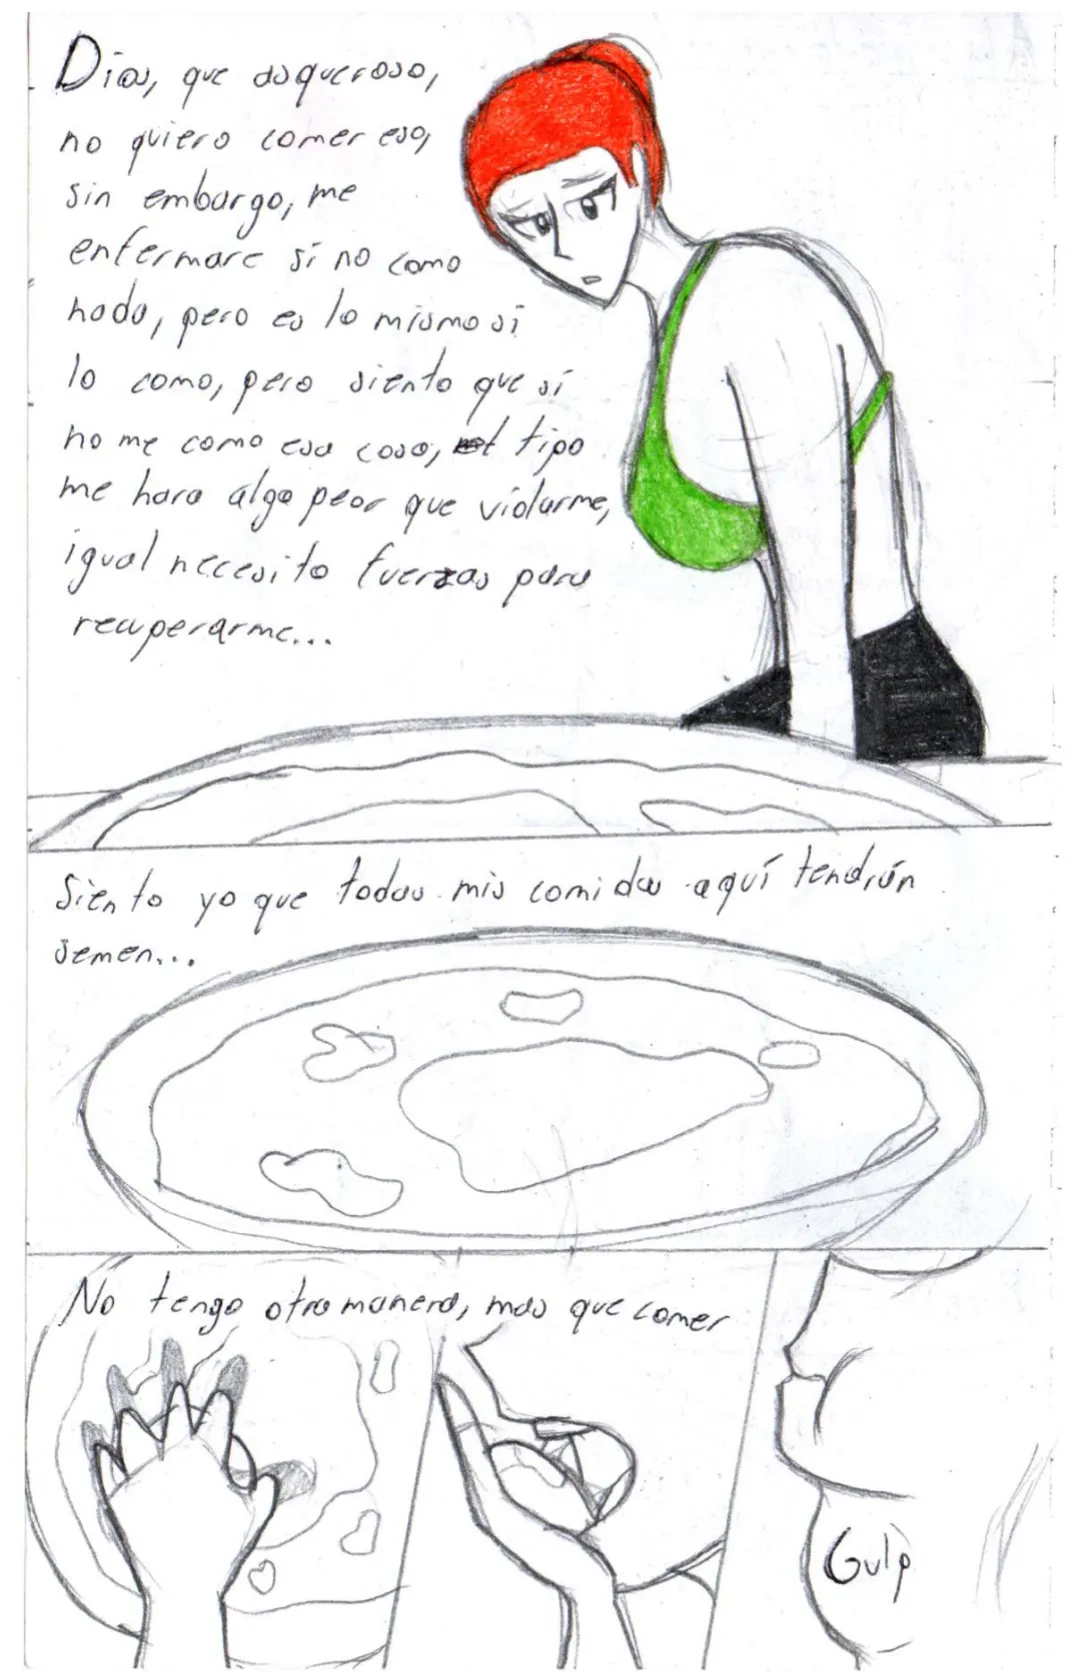 Dios, que asqueroso,
no quiero comer eso,
sin embargo, me
enfermare si no como
nada, pero es lo mismo si
lo como, pero siento que si
no me como esa cosa, el tipo
me hara algo peor que violarme,
igual necesito fuerzas para
recuperarme...
Siento yo que todas mis comidas aquí tendrán
semen...
No tengo otra manera, mas que comer
Gulp